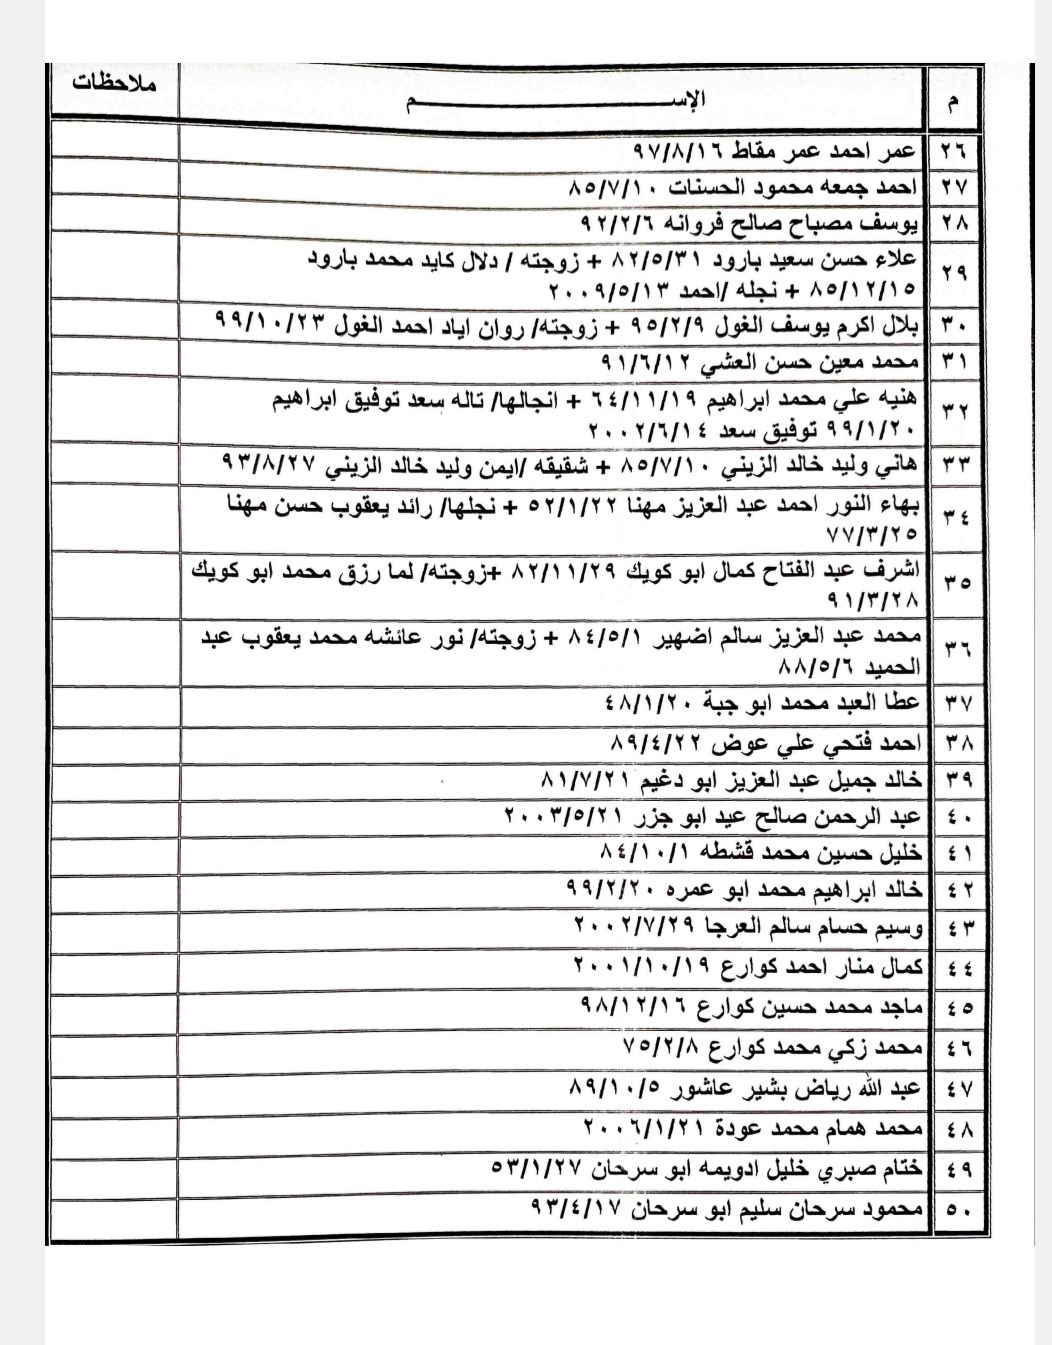 م الإســـــــــــم ملاحظات
٢٦ عمر احمد عمر مقاط ٩٧/٨/١٦
٢٧ احمد جمعه محمود الحسنات ٨٥/٧/١٠
٢٨ يوسف مصباح صالح فروانه ٩٢/٢/٦
٢٩ علاء حسن سعيد بارود ٨٢/٥/٣١ + زوجته / دلال كايد محمد بارود
٨٥/١٢/١٥ + نجله /احمد ٢٠٠٩/٥/١٣
٣٠ بلال اكرم يوسف الغول ٩٥/٢/٩ + زوجته/ روان اياد احمد الغول ٩٩/١٠/٢٣
٣١ محمد معين حسن العشي ٩١/٦/١٢
٣٢ هنيه علي محمد ابراهيم ٦٤/١١/١٩ + انجالها/ تاله سعد توفيق ابراهيم
٩٩/١/٢٠ توفيق سعد ٢٠٠٢/٦/١٤
٣٣ هاني وليد خالد الزيني ٨٥/٧/١٠ + شقيقه /ايمن وليد خالد الزيني ٩٣/٨/٢٧
٣٤ بهاء النور احمد عبد العزيز مهنا ٥٢/١/٢٢ + نجلها/ رائد يعقوب حسن مهنا
٧٧/٣/٢٥
٣٥ اشرف عبد الفتاح كمال ابو كويك ٨٢/١١/٢٩ +زوجته/ لما رزق محمد ابو كويك
٩١/٣/٢٨
٣٦ محمد عبد العزيز سالم اضهير ٨٤/٥/١ + زوجته/ نور عائشه محمد يعقوب عبد
الحميد ٨٨/٥/٦
٣٧ عطا العبد محمد ابو جبة ٤٨/١/٢٠
٣٨ احمد فتحي علي عوض ٨٩/٤/٢٢
٣٩ خالد جميل عبد العزيز ابو دغيم ٨١/٧/٢١
٤٠ عبد الرحمن صالح عيد ابو جزر ٢٠٠٣/٥/٢١
٤١ خليل حسين محمد قشطه ٨٤/١٠/١
٤٢ خالد ابراهيم محمد ابو عمره ٩٩/٢/٢٠
٤٣ وسيم حسام سالم العرجا ٢٠٠٢/٧/٢٩
٤٤ كمال منار احمد كوارع ٢٠٠١/١٠/١٩
٤٥ ماجد محمد حسين كوارع ٩٨/١٢/١٦
٤٦ محمد زكي محمد كوارع ٧٥/٢/٨
٤٧ عبد الله رياض بشير عاشور ٨٩/١٠/٥
٤٨ محمد همام محمد عودة ٢٠٠٦/١/٢١
٤٩ ختام صبري خليل ادويمه ابو سرحان ٥٣/١/٢٧
٥٠ محمود سرحان سليم ابو سرحان ٩٣/٤/١٧